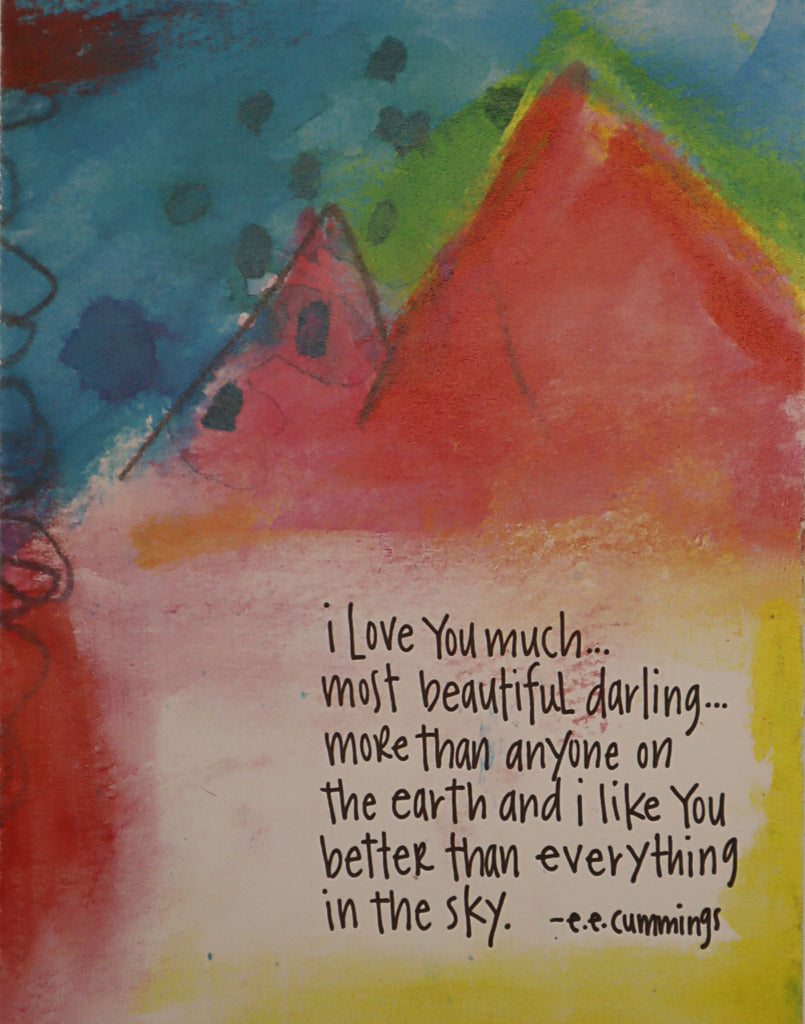 i Love You much...
most beautiful darling...
more than anyone on
the earth and i like You
better than everything
in the sky. -e.e.cummings